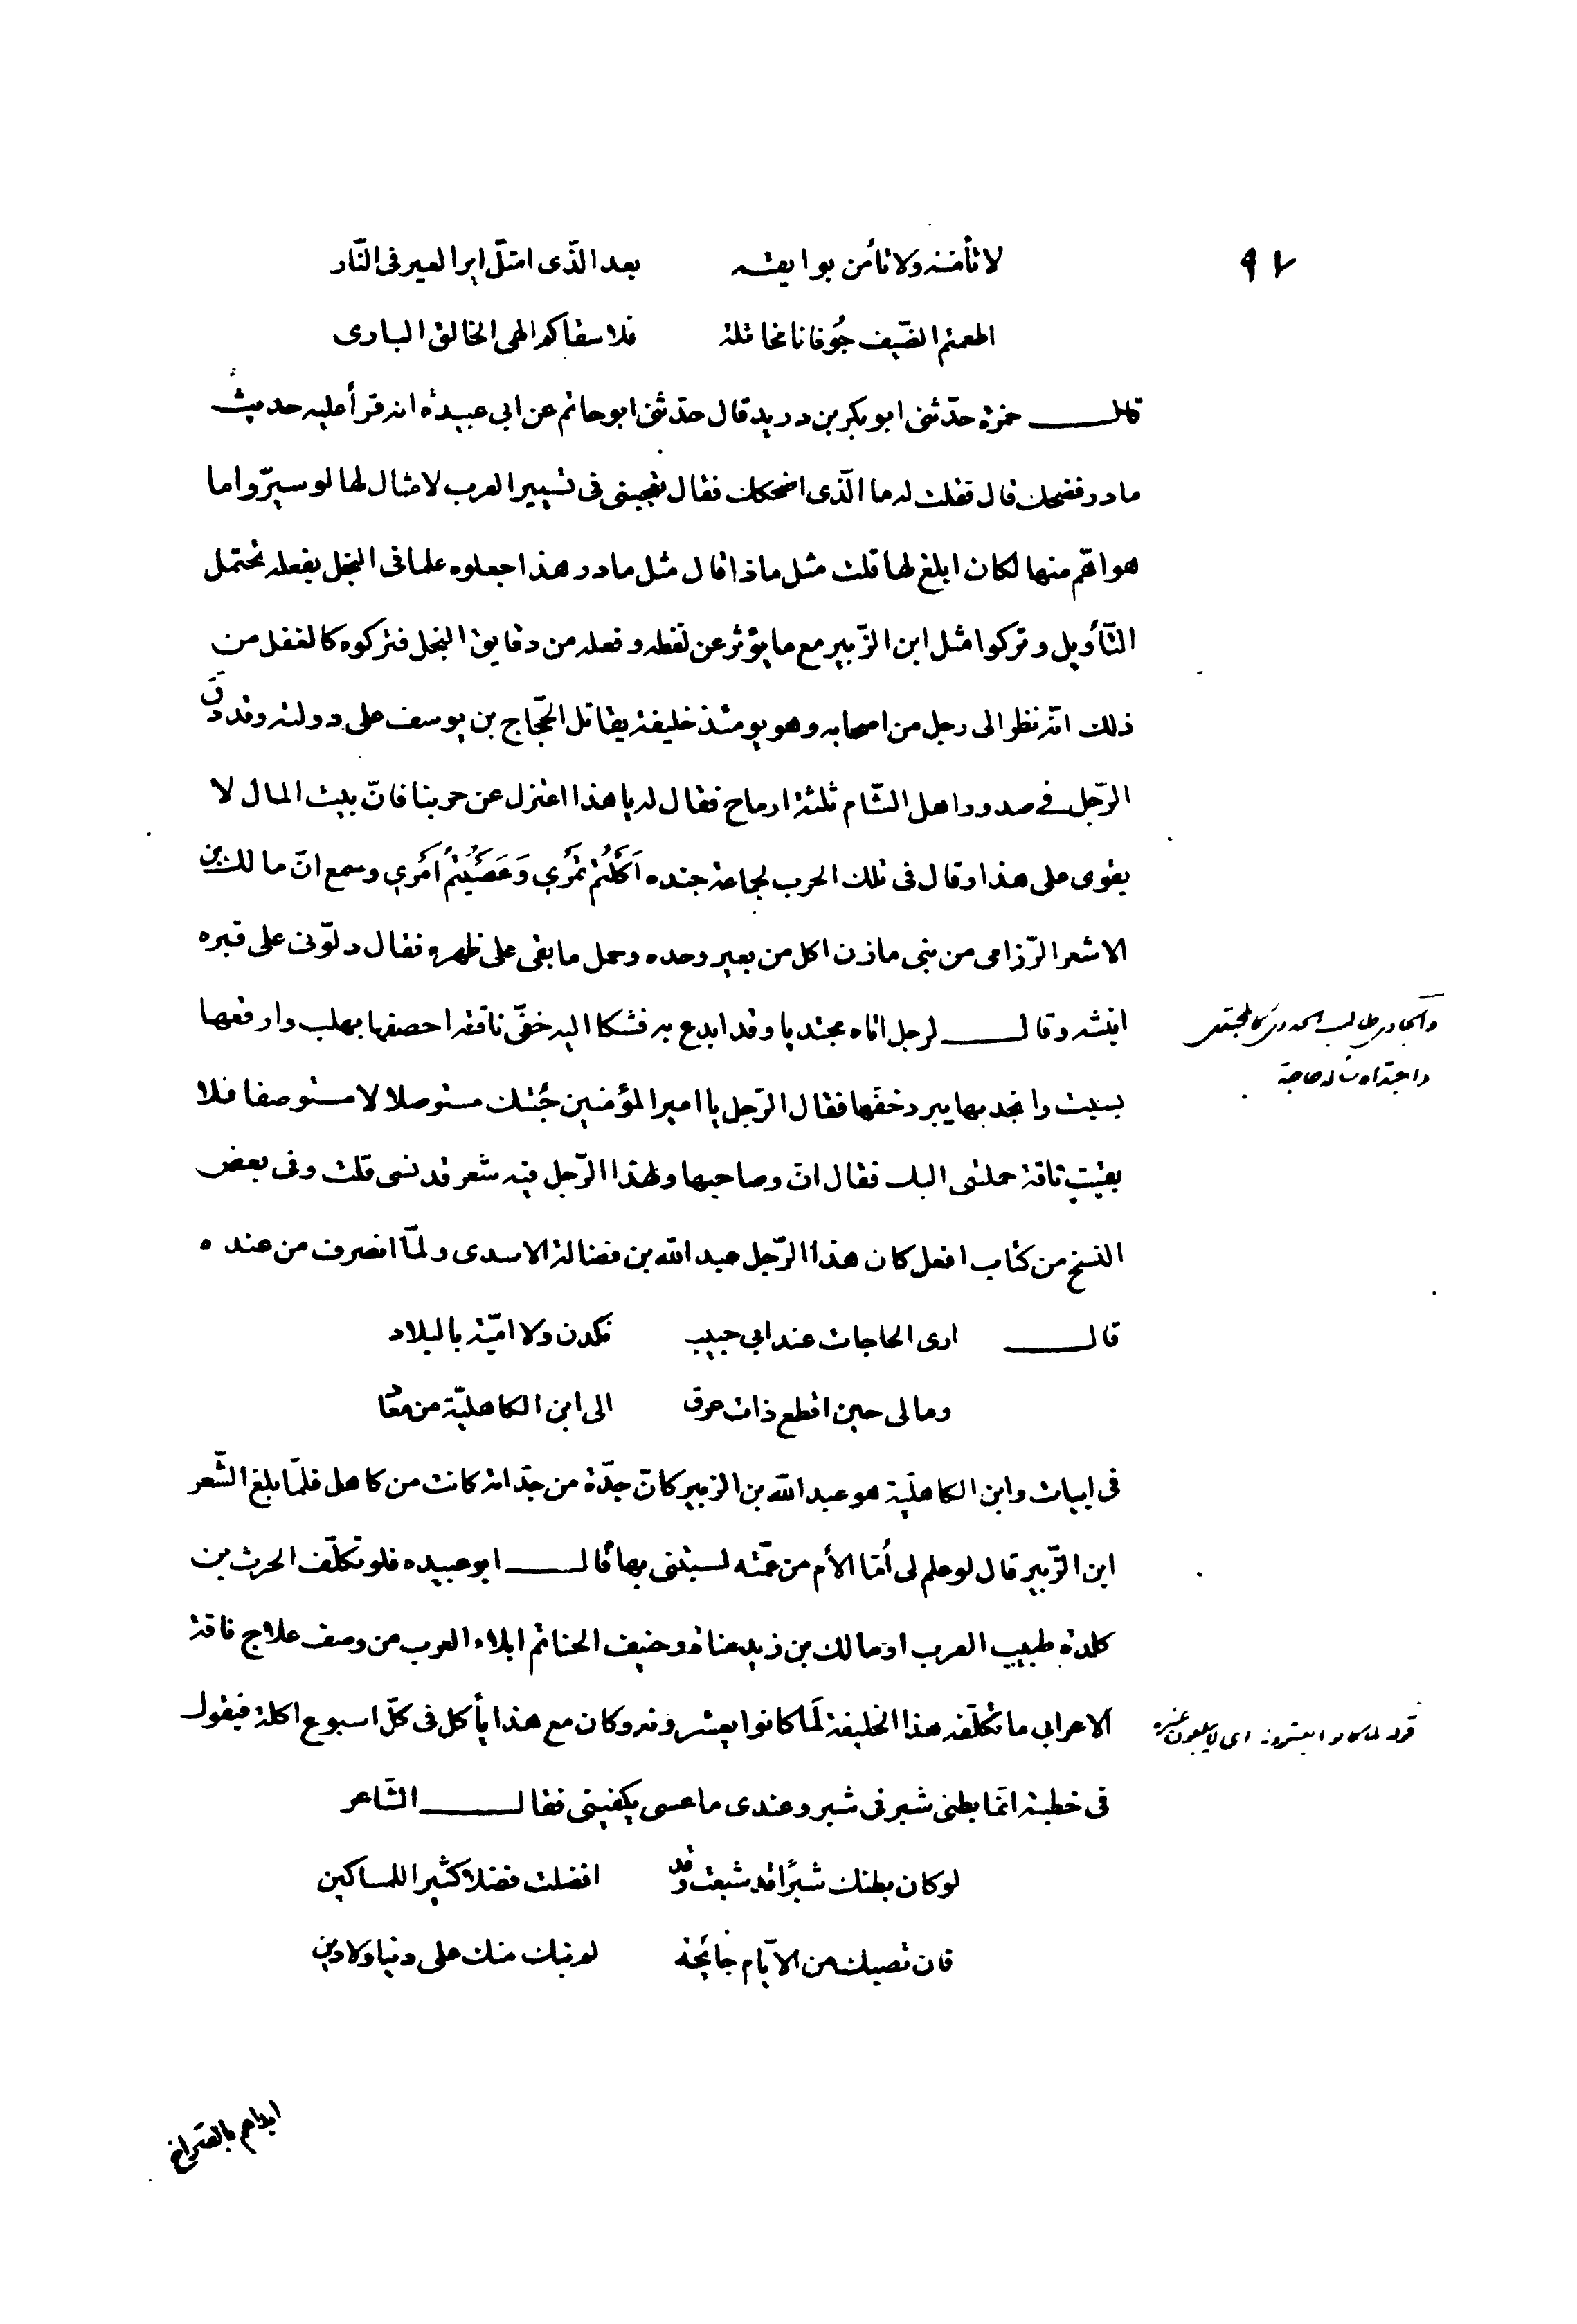 ٩٧
لا تأمننه ولا تأمن بوايقه بعد الّذى امتلّ اير العير فى النّار
اطعمتم الضّيف جُوفانا مخاتلة فلا سقاكم الهى الخالق البارى
قال حمزة حدّثنى ابو بكر بن دريد قال حدّثنى ابو حاتم عن ابى عبيدة انه قرأ عليه حديث
مادر فضحك قال فقلت له ما الّذى اضحكك فقال تعجبنى فى تسيير العرب لامثال لها لو سيرّوا ما
هو اهمّ منها لكان ابلغ لها قلت مثل ماذا قال مثل مادر هذا جعلوه علما فى البخل بفعله تحتمل
التّأويل وتركوا مثل ابن الزّبير مع ما يؤثر عن لفظه وفعله من دقايق البخل فتركوه كالغفل من
ذلك انّه نظر الى رجل من اصحابه وهو يومئذ خليفة يقاتل الحّجاج بن يوسف على دولته وقد دقَّ
الرّجل فى صدور اهل الشّام ثلثة ارماح فقال له يا هذا اعتزل عن حربنا فانّ بيت المال لا
يقوى على هذا وقال فى تلك الحرب لجماعة جنده اَكَلْتُمْ تَمْرِي وَعَصَيْتُمْ اَمْرِي وسمع انّ مالك بن
الاشعر الرّزامى من بنى مازن اكل من بعير وحده وحمل ما بقى على ظهره فقال دلّونى على قبره
انبشه وقال لرجل اتاه مجتديا وقد ابدع به فشكا اليه خفّى ناقته اخصفها بهلب وارقعها
واجتداه سأله حاجة
بسبت وانجد بها يبرد خفّها فقال الرّجل يا امير المؤمنين جُئتك مستوصلا لا مستوصفا فلا
بقيت ناقة حملتنى اليك فقال انّ وصاحبها ولهذا الرّجل فيه شعر قد نسى قلت وفى بعض
النسخ من كتاب افعل كان هذا الرّجل عبد الله بن فضالة الاسدى ولمّا انصرف من عنده
قال ارى الحاجات عند ابى خبيب نكدن ولا اميّة بالبلاد
ومالى حين اقطع ذات عرق الى ابن الكاهليّة من معاد
فى ابيات وابن الكاهليّة هو عبد الله بن الزبير كانّ جدّة من جدّاته كانت من كاهل فلمّا بلغ الشّعر
ابن الزّبير قال لو علم لى اُمّا الأم من عمّته لسبّنى بها قال ابو عبيده فلو تكلّف الحرث بن
كلدة طبيب العرب او مالك بن زيد مناة وحنيف الحناتم ابلاء العرب من وصف علاج ناقة
الاعرابى ما تكلّفه هذا الخليفة لَما كانوا يعشرونه وكان مع هذا يأكل فى كلّ اسبوع اكلة فيقول
قوله لما كانوا يعشرونه اى لا يبلغون عشره
فى خطبته انّما بطنى شبر فى شبر وعندى ما عسى يكفينى فقال الشّاعر
لو كان بطنك شبرًا قد شبعت وقد افضلت فضلا كثيرا للمساكين
فان تصبك من الايّام جائحة لم نبك منك على دنيا ولا دين